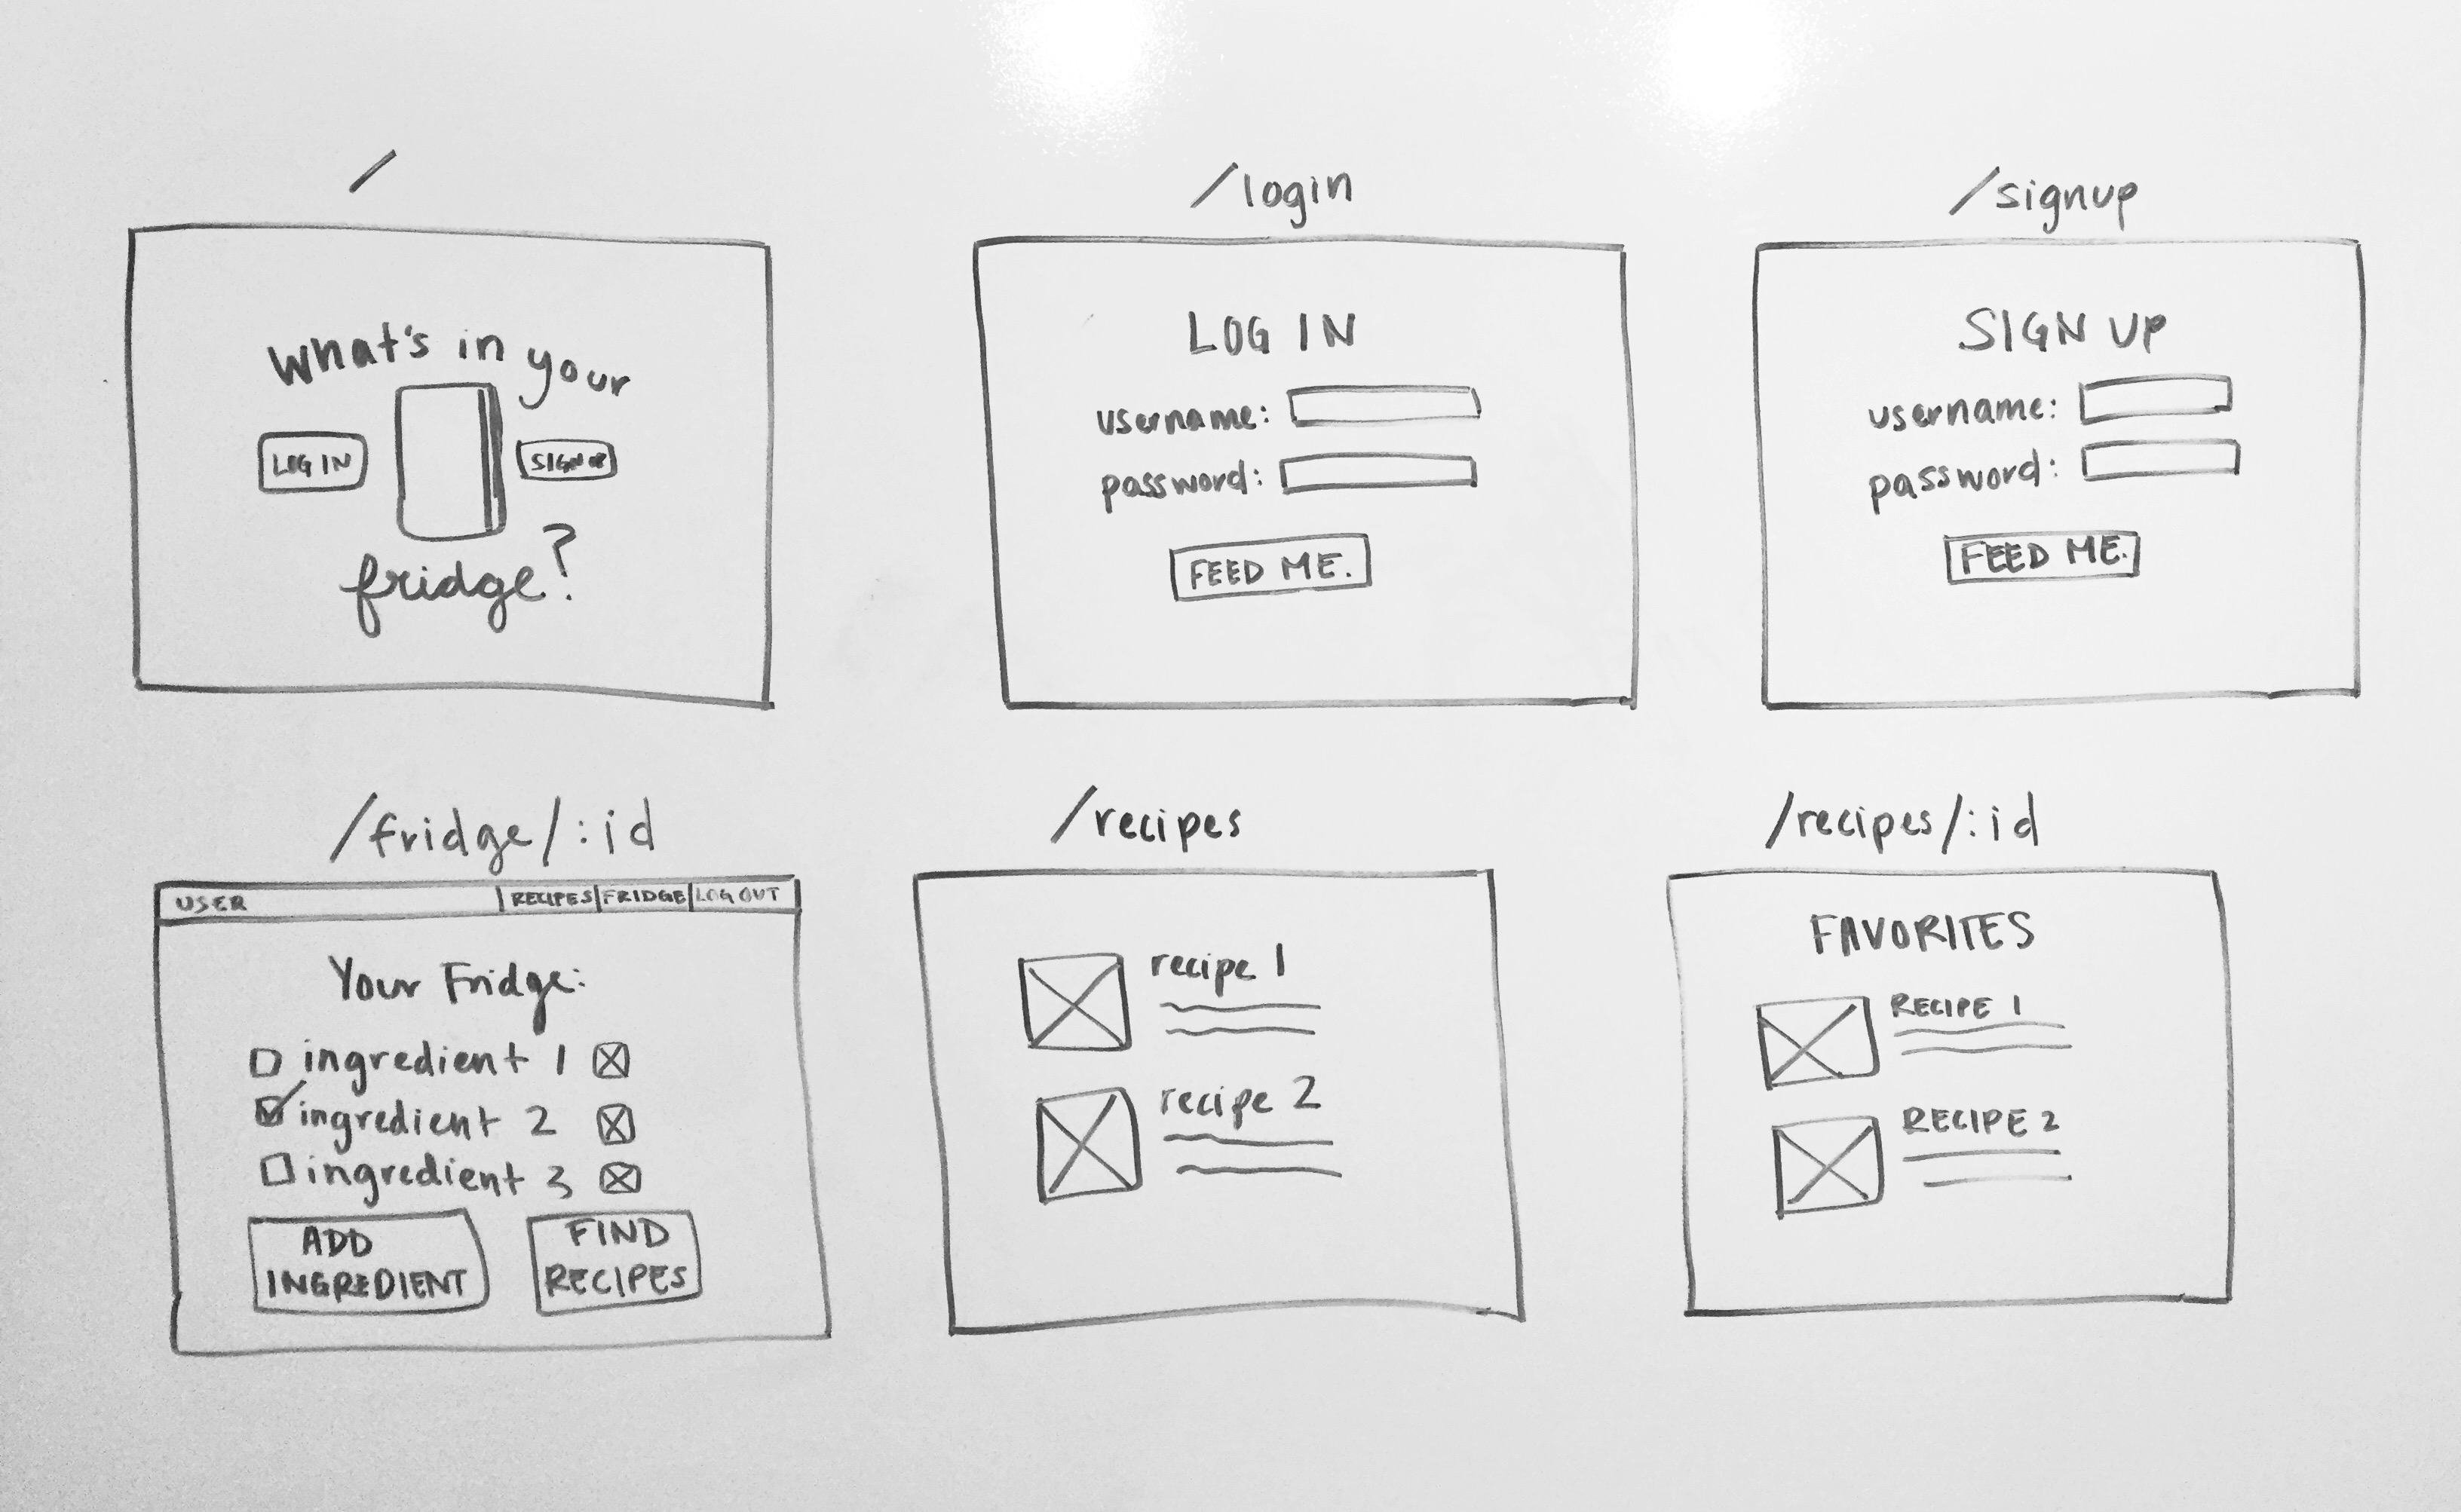 /
What's in your
LOG IN
SIGN UP
fridge?
/login
LOG IN
username:
password:
FEED ME.
/signup
SIGN UP
username:
password:
FEED ME.
/fridge/:id
USER RECIPES FRIDGE LOG OUT
Your Fridge:
ingredient 1
ingredient 2
ingredient 3
ADD
INGREDIENT
FIND
RECIPES
/recipes
recipe 1
recipe 2
/recipes/:id
FAVORITES
RECIPE 1
RECIPE 2